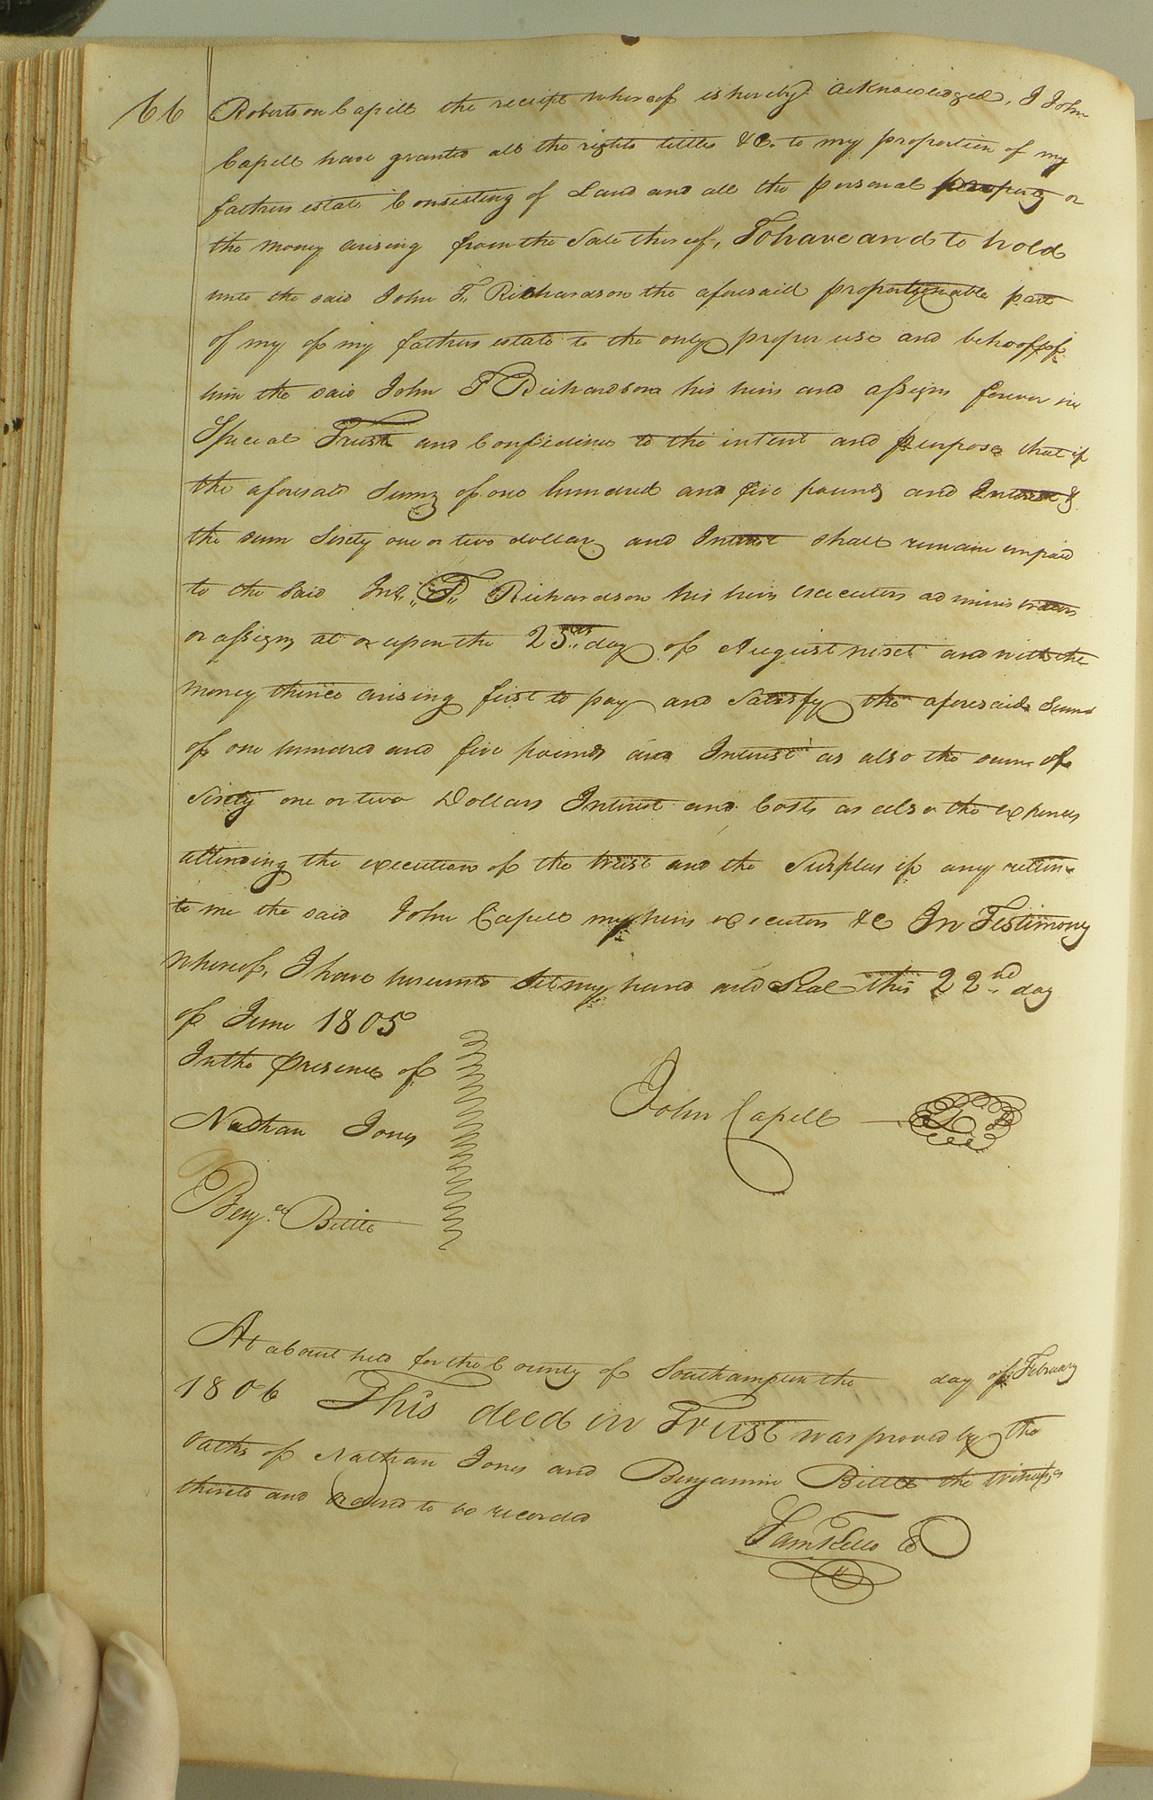 66
Robertson Capell the receipt whereof is hereby acknowledged, I John
Capell have granted all the rights titles &c. to my proportion of my
fathers estate Consisting of Land and all the personal property or
the money arising from the Sale thereof, To have and to hold
unto the said John T. Richardson the aforesaid proportionable part
of my of my fathers estate to the only proper use and behoof of
him the said John T Richardson his heirs and assigns forever in
Special Trust and Confidence to the intent and purpose that if
the aforesaid Sum of one hundred and five pounds and Interest &
the sum Sixty one or two dollars and Interest shall remain unpaid
to the Said Jno. T. Richardson his heirs executors administrators
or assigns at or upon the 25th day of August next and with the
money thence arising first to pay and Satisfy the aforesaid Sum
of one hundred and five pounds and Interest as also the sum of
Sixty one or two Dollars Interest and Costs as also the expences
attending the execution of the trust and the Surplus if any return
to me the said John Capell my heirs executors &c In Testimony
Whereof, I have hereunto Set my hand and Seal this 22nd day
of June 1805
In the presence of
Nathan Jones
John Capell LS
Benja. Bittle
At a Court held for the County of Southampton the day of February
1806 This deed in Trust was proved by the
oaths of Nathan Jones and Benjamin Bittle the witnesses
thereto and ordered to be recorded
Sam Kello CC